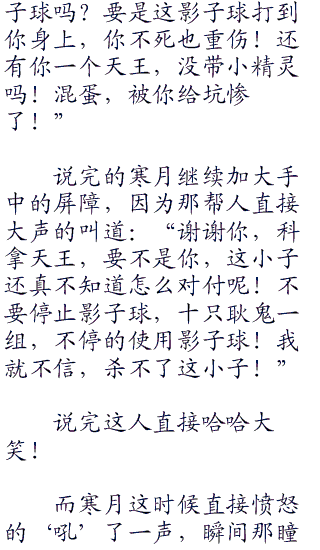 子球吗？要是这影子球打到
你身上，你不死也重伤！还
有你一个天王，没带小精灵
吗！混蛋，被你给坑惨
了！”
说完的寒月继续加大手
中的屏障，因为那帮人直接
大声的叫道：“谢谢你，科
拿天王，要不是你，这小子
还真不知道怎么对付呢！不
要停止影子球，十只耿鬼一
组，不停的使用影子球！我
就不信，杀不了这小子！”
说完这人直接哈哈大
笑！
而寒月这时候直接愤怒
的‘吼’了一声，瞬间那瞳